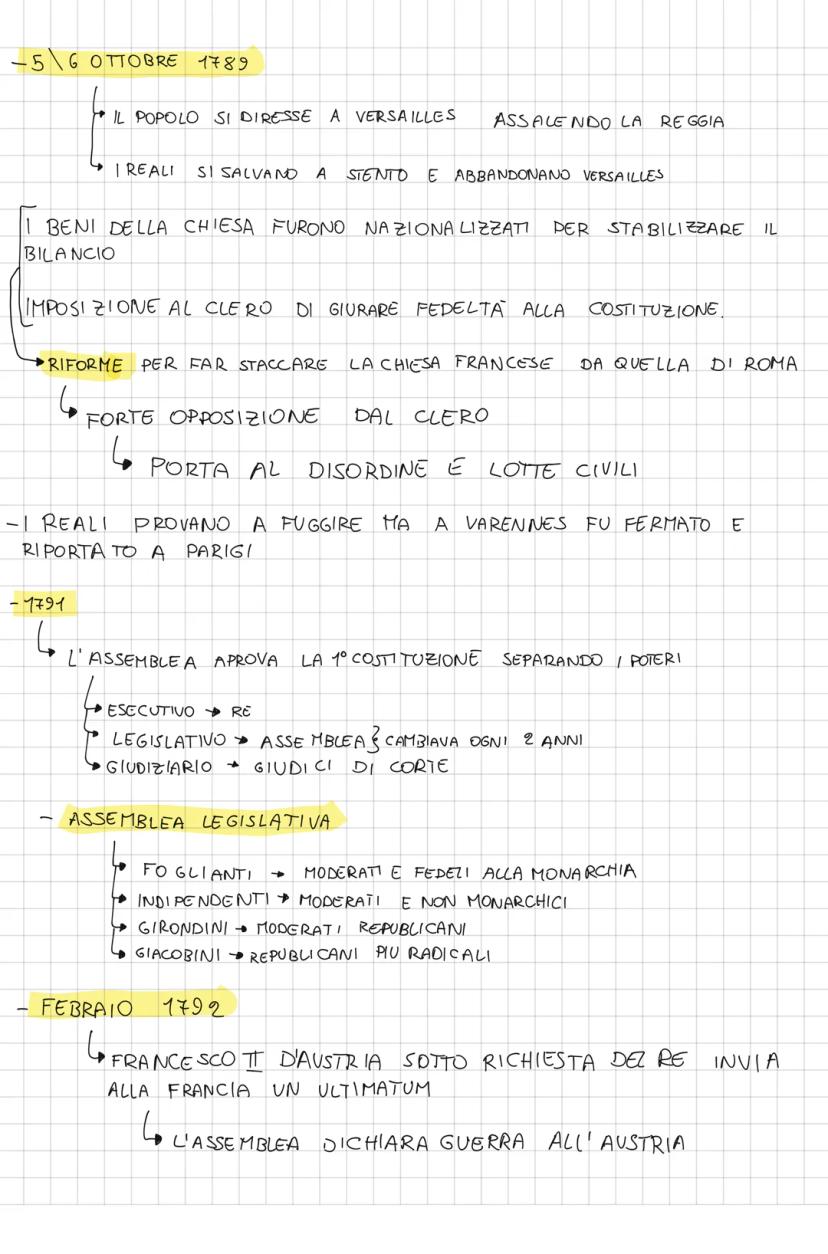 - 5\6 OTTOBRE 1789
IL POPOLO SI DIRESSE A VERSAILLES ASSALENDO LA REGGIA
I REALI SI SALVANO A STENTO E ABBANDONANO VERSAILLES
I BENI DELLA CHIESA FURONO NAZIONALIZZATI PER STABILIZZARE IL
BILANCIO
IMPOSIZIONE AL CLERO DI GIURARE FEDELTÀ ALLA COSTITUZIONE.
RIFORME PER FAR STACCARE LA CHIESA FRANCESE DA QUELLA DI ROMA
FORTE OPPOSIZIONE DAL CLERO
PORTA AL DISORDINE E LOTTE CIVILI
- I REALI PROVANO A FUGGIRE MA A VARENNES FU FERMATO E
RIPORTATO A PARIGI
- 1791
L'ASSEMBLEA APROVA LA 1° COSTITUZIONE SEPARANDO I POTERI
ESECUTIVO → RE
LEGISLATIVO → ASSEMBLEA } CAMBIAVA OGNI 2 ANNI
GIUDIZIARIO → GIUDICI DI CORTE
- ASSEMBLEA LEGISLATIVA
FOGLIANTI → MODERATI E FEDELI ALLA MONARCHIA
INDIPENDENTI → MODERATI E NON MONARCHICI
GIRONDINI → MODERATI REPUBLICANI
GIACOBINI → REPUBLICANI PIU RADICALI
- FEBRAIO 1792
FRANCESCO II D'AUSTRIA SOTTO RICHIESTA DEL RE INVIA
ALLA FRANCIA UN ULTIMATUM
L'ASSEMBLEA DICHIARA GUERRA ALL'AUSTRIA